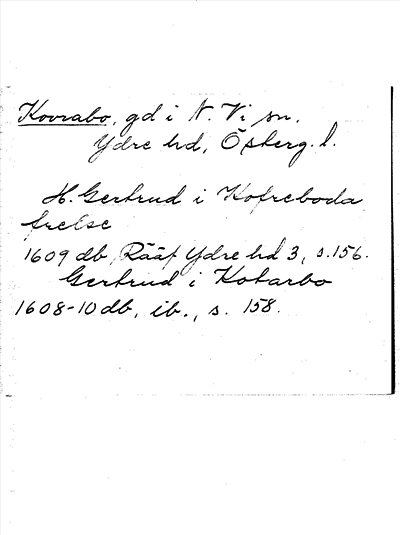 Kovrabo, gd i N. Vi sn.
Ydre hd, Österg. l.
H. Gertrud i Kofreboda
frelse
1609 db, Rääf Ydre hd 3, s. 156.
Gertrud i Kobarbo
1608-10 db, ib., s. 158.